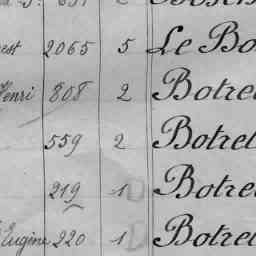 est 2065 5 Le Bo
Henri 808 2 Botrel
559 2 Botrel
219 1 D Botrel
Eugène 220 1 D Botrel